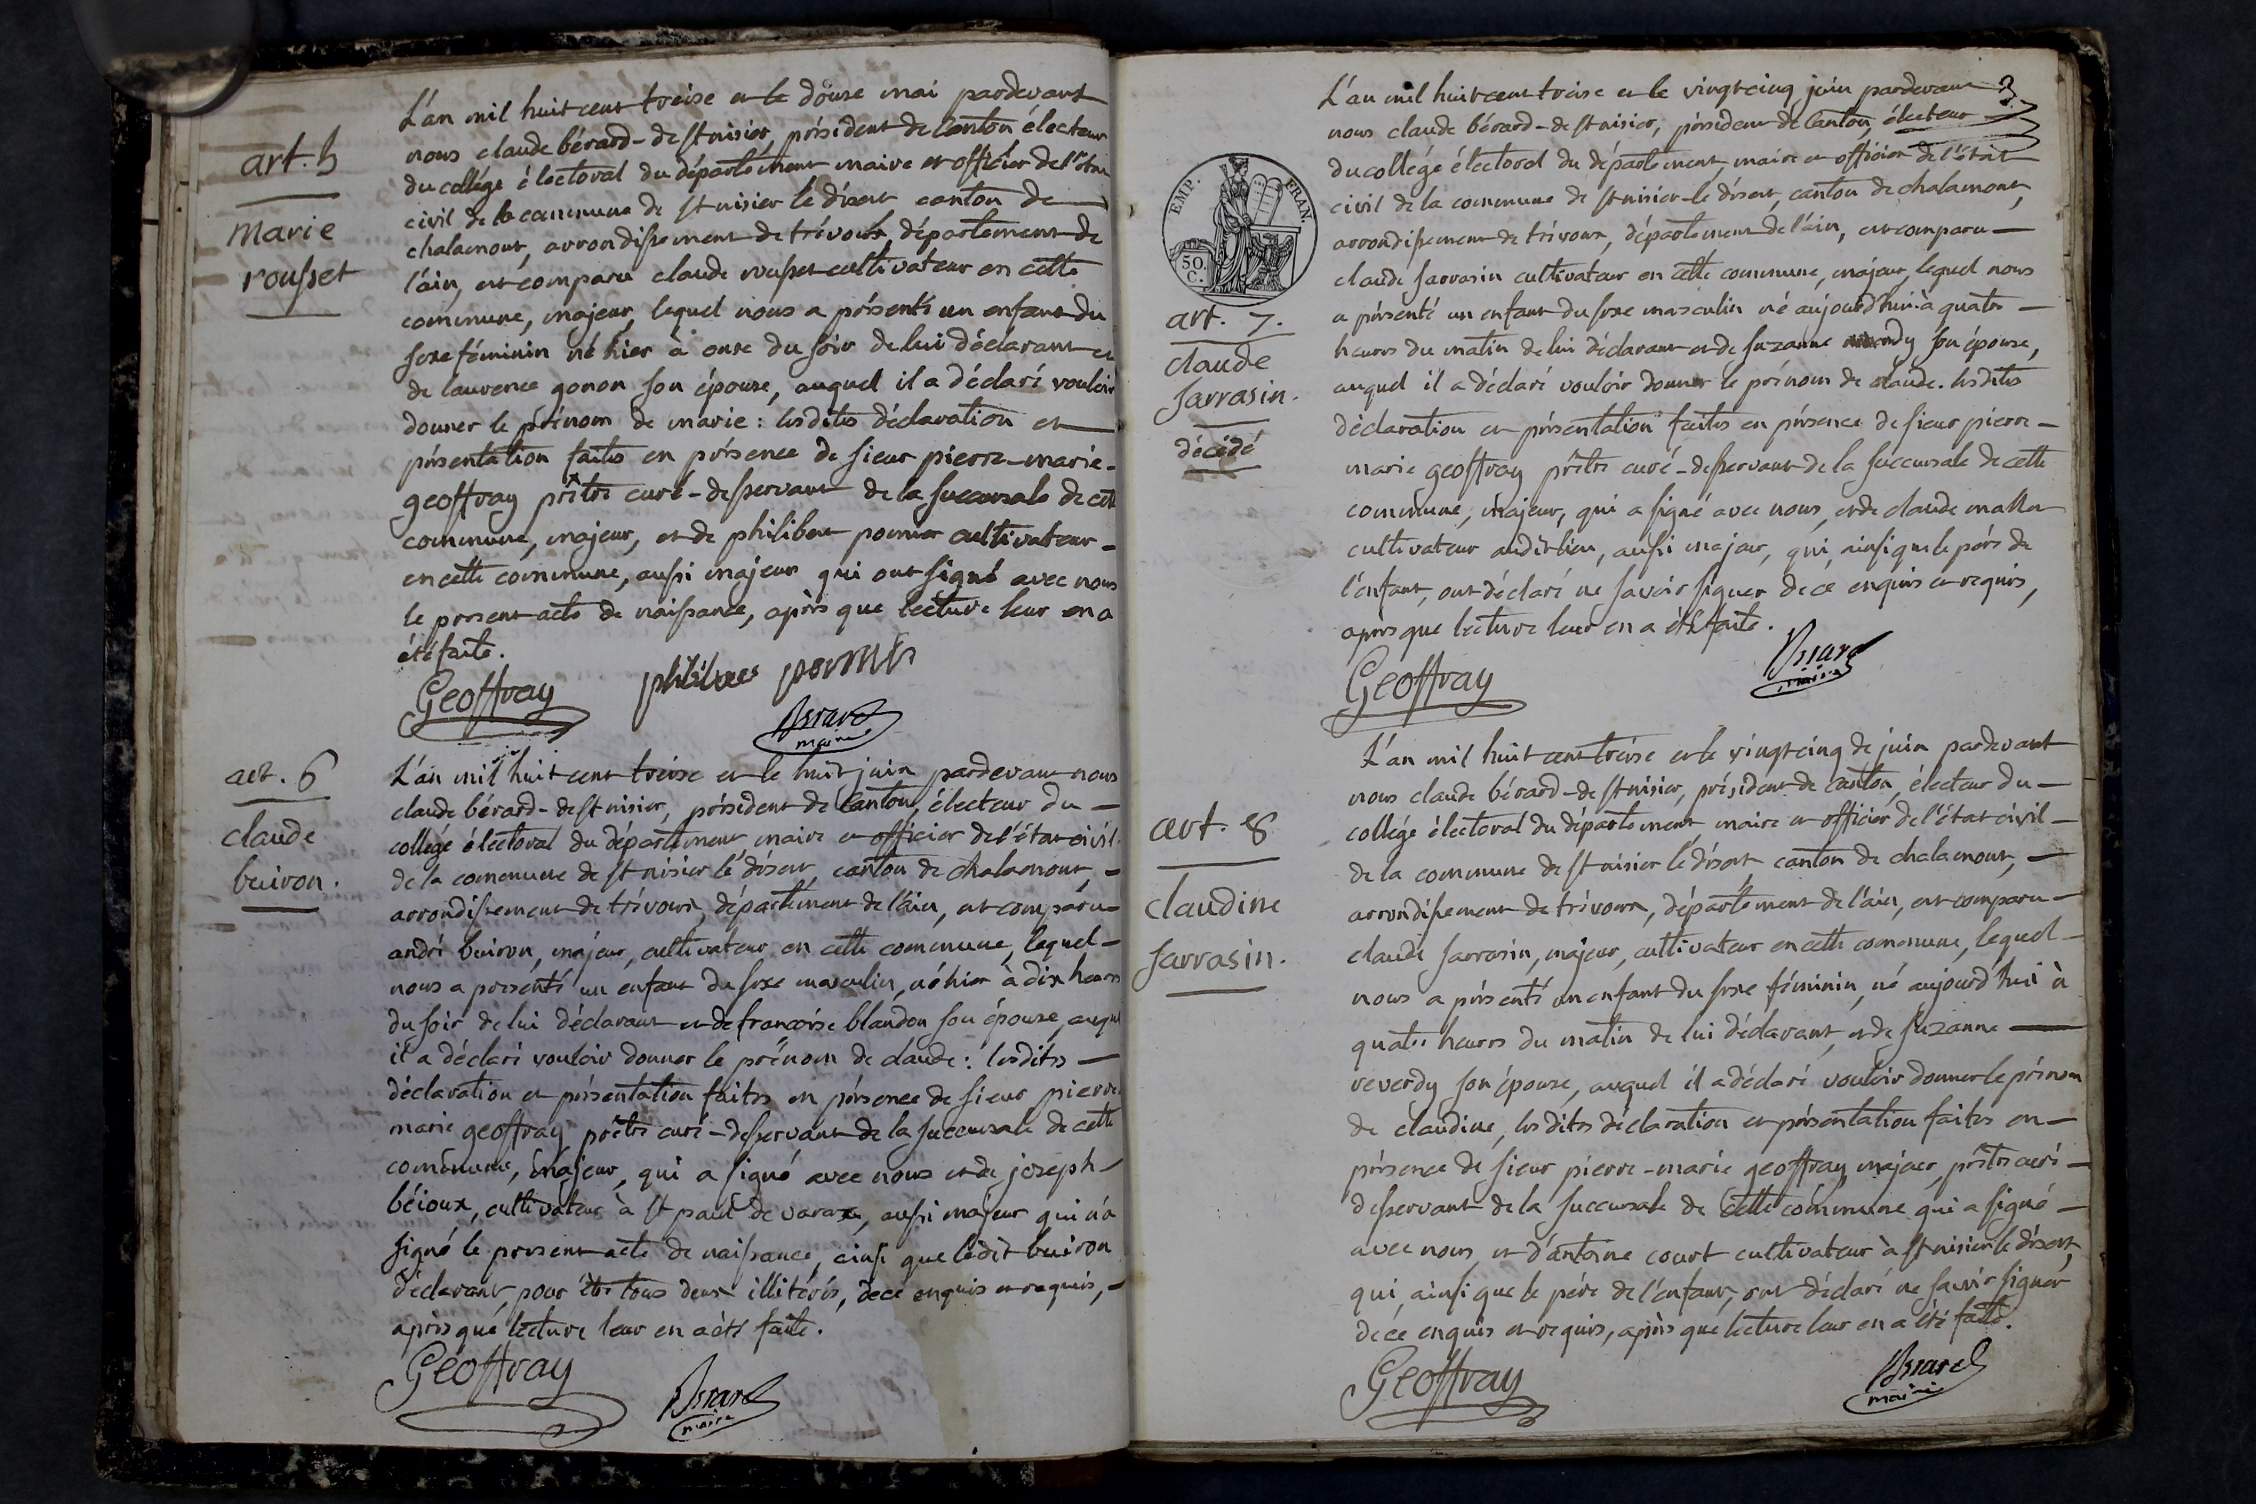 art. 5
Marie
rousset
L'an mil huit cent treise et le douse mai pardevant
nous claude bérard-de st nisier, président de canton électeur
du collége électoral du département maire et officier de l'état
civil de la commune de st nisier le désert canton de
chalamont, arrondissement de trévoux département de
l'ain, est comparu claude rousset cultivateur en cette
commune, majeur, lequel nous a présenté un enfant du
sexe féminin né hier à onse du soir de lui déclarant et
de laurence gonon son épouse, auquel il a déclaré vouloir
donner le prénom de marie : lesdites déclaration et
présentation faites en présence de sieur pierre-marie-
geoffray prêtre curé-desservant de la succursale de cette
commune, majeur, et de philibert cultivateur
en cette commune, aussi majeur qui ont signé avec nous
le present acte de naissance, après que lecture leur en a
été faite.
Geoffray
Bérard
maire
art. 6
claude
buiron.
L'an mil huit cent treise et le huit juin pardevant nous
claude bérard-de st nisier, président de canton, électeur du
collége électoral du département, maire et officier de l'état civil
de la commune de st nisier le désert, canton de chalamont,
arrondissement de trévoux, département de l'ain, est comparu
andré buiron, majeur, cultivateur en cette commune, lequel
nous a présenté un enfant du sexe masculin, né hier à dix heures
du soir de lui déclarant et de françoise blandon son épouse, auquel
il a déclaré vouloir donner le prénom de claude : lesdites
déclaration et présentation faites en présence de sieur pierre
marie geoffray prêtre curé-desservant de la succursale de cette
commune, majeur, qui a signé avec nous et de joseph
béjoux, cultivateur à st paul de varax, aussi majeur qui n'a
signé le present acte de naissance, ainsi que ledit buiron
déclarant pour être tous deux illitérés, de ce enquis et requis,
après que lecture leur en a été faite.
Geoffray
Bérard
maire
3
EMP. FRAN.
50.
C.
art. 7.
claude
sarrasin.
décédé
L'an mil huit cent treise et le vingt cinq juin pardevant
nous claude bérard-de st nisier, président de canton, électeur
du collége électoral du département, maire et officier de l'état
civil de la commune de st nisier-le désert, canton de chalamont,
arrondissement de trévoux, département de l'ain, est comparu
claude sarrasin cultivateur en cette commune, majeur, lequel nous
a présenté un enfant du sexe masculin né aujourd'hui à quatre
heures du matin de lui déclarant et de suzanne son épouse,
auquel il a déclaré vouloir donner le prénom de claude. lesdites
déclaration et présentation faites en présence de sieur pierre-
marie geoffray prêtre curé-desservant de la succursale de cette
commune, majeur, qui a signé avec nous, et de claude
cultivateur audit lieu, aussi majeur, qui, ainsi que le père de
l'enfant, ont déclaré ne savoir signer de ce enquis et requis,
après que lecture leur en a été faite.
Geoffray
Bérard
maire
art. 8
claudine
sarrasin.
L'an mil huit cent treise et le vingt cinq de juin pardevant
nous claude bérard-de st nisier, président de canton, électeur du
collége électoral du département, maire et officier de l'état civil
de la commune de st nisier le désert, canton de chalamont,
arrondissement de trévoux, département de l'ain, est comparu
claude sarrasin, majeur, cultivateur en cette commune, lequel
nous a présenté un enfant du sexe féminin, né aujourd'hui à
quatre heures du matin de lui déclarant, et de suzanne
reverdy son épouse, auquel il a déclaré vouloir donner le prénom
de claudine, lesdites déclaration et présentation faites en
présence de sieur pierre-marie geoffray, majeur, prêtre curé
desservant de la succursale de cette commune qui a signé
avec nous, et d'antoine court cultivateur à st nisier le désert,
qui, ainsi que le père de l'enfant, ont déclaré ne savoir signer
de ce enquis et requis, après que lecture leur en a été faite.
Geoffray
Bérard
maire